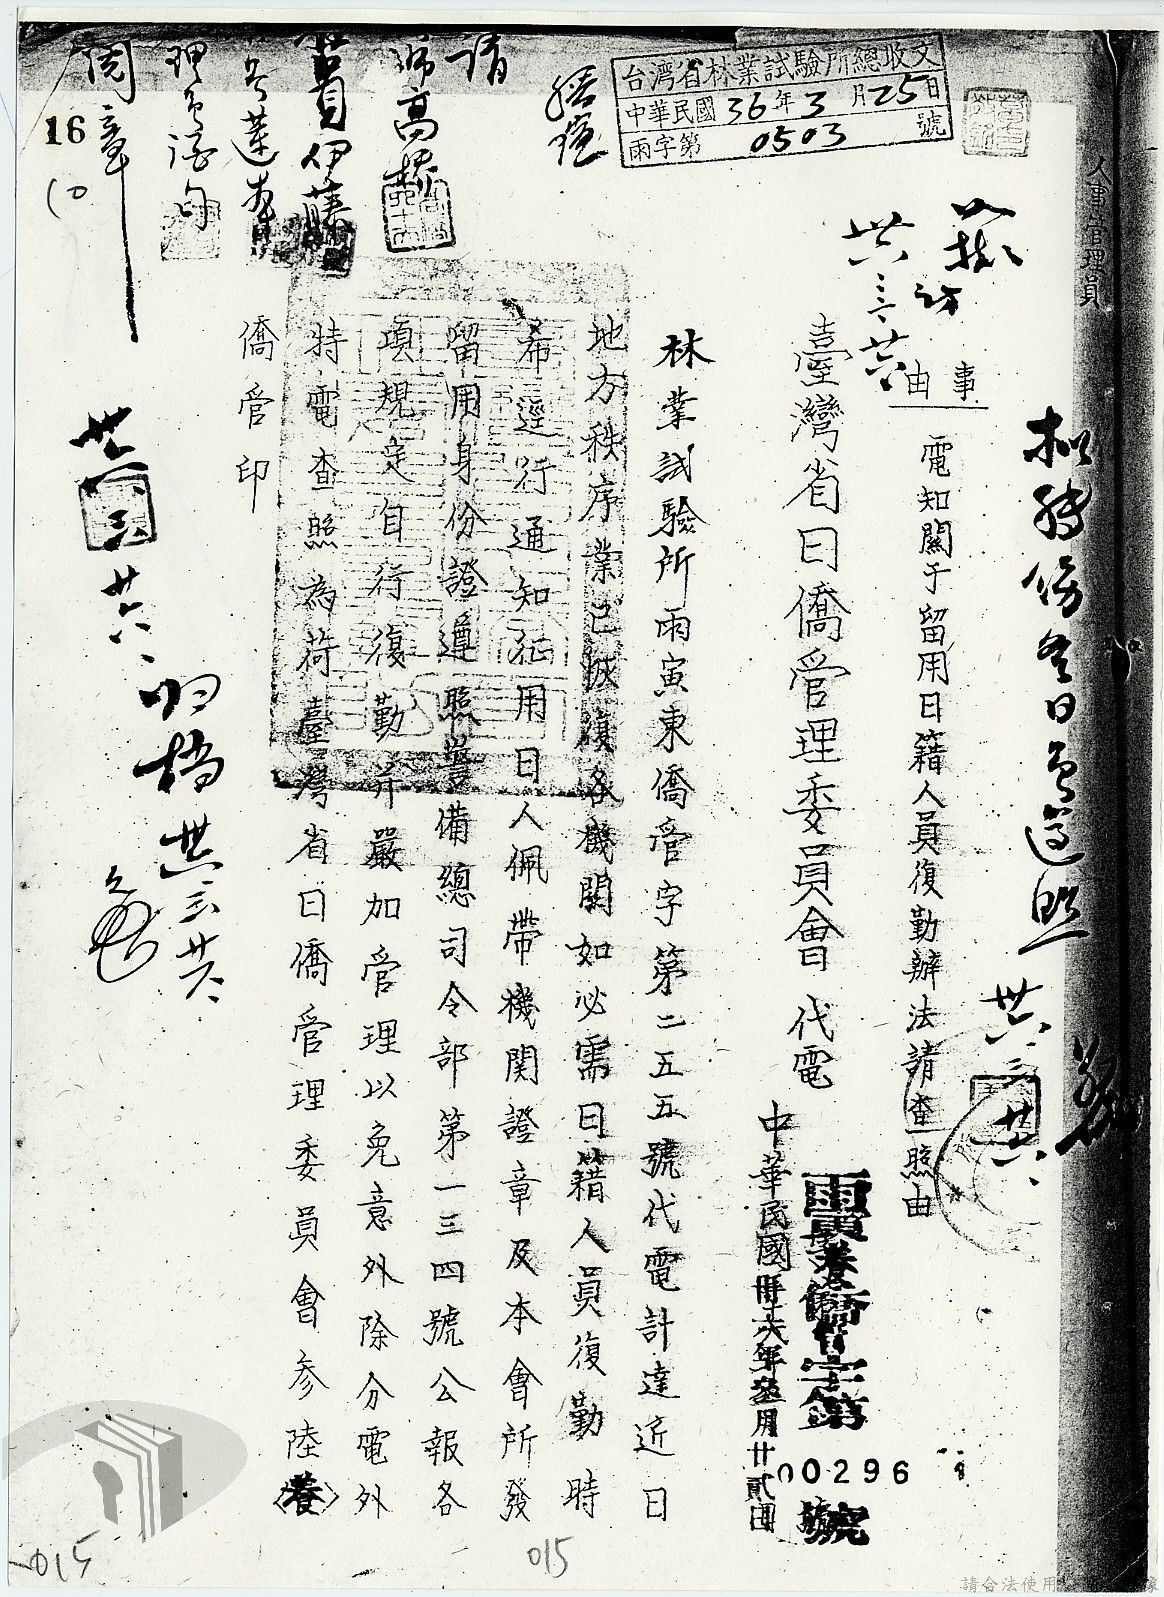 台湾省林業試驗所總收文
中華民國36年3月25日
雨字第0503號
人事管理員
事由
電知關于留用日籍人員復勤辦法請查照由
臺灣省日僑管理委員會代電
中華民國卅六年叁月廿貳日
00296
號
林業試驗所雨寅東僑管字第二五五號代電計達近日
地方秩序業已恢復各機關如必需日籍人員復勤時
希逕行通知征用日人佩帶機関證章及本會所發
留用身份證遵照警備總司令部第一三四號公報各
項規定自行復勤并嚴加管理以免意外除分電外
特電查照為荷臺灣省日僑管理委員會参陸(養)
僑管印
卅六、三、廿六
归檔
請
高橋
伊藤
周章
16
015
015
請合法使用